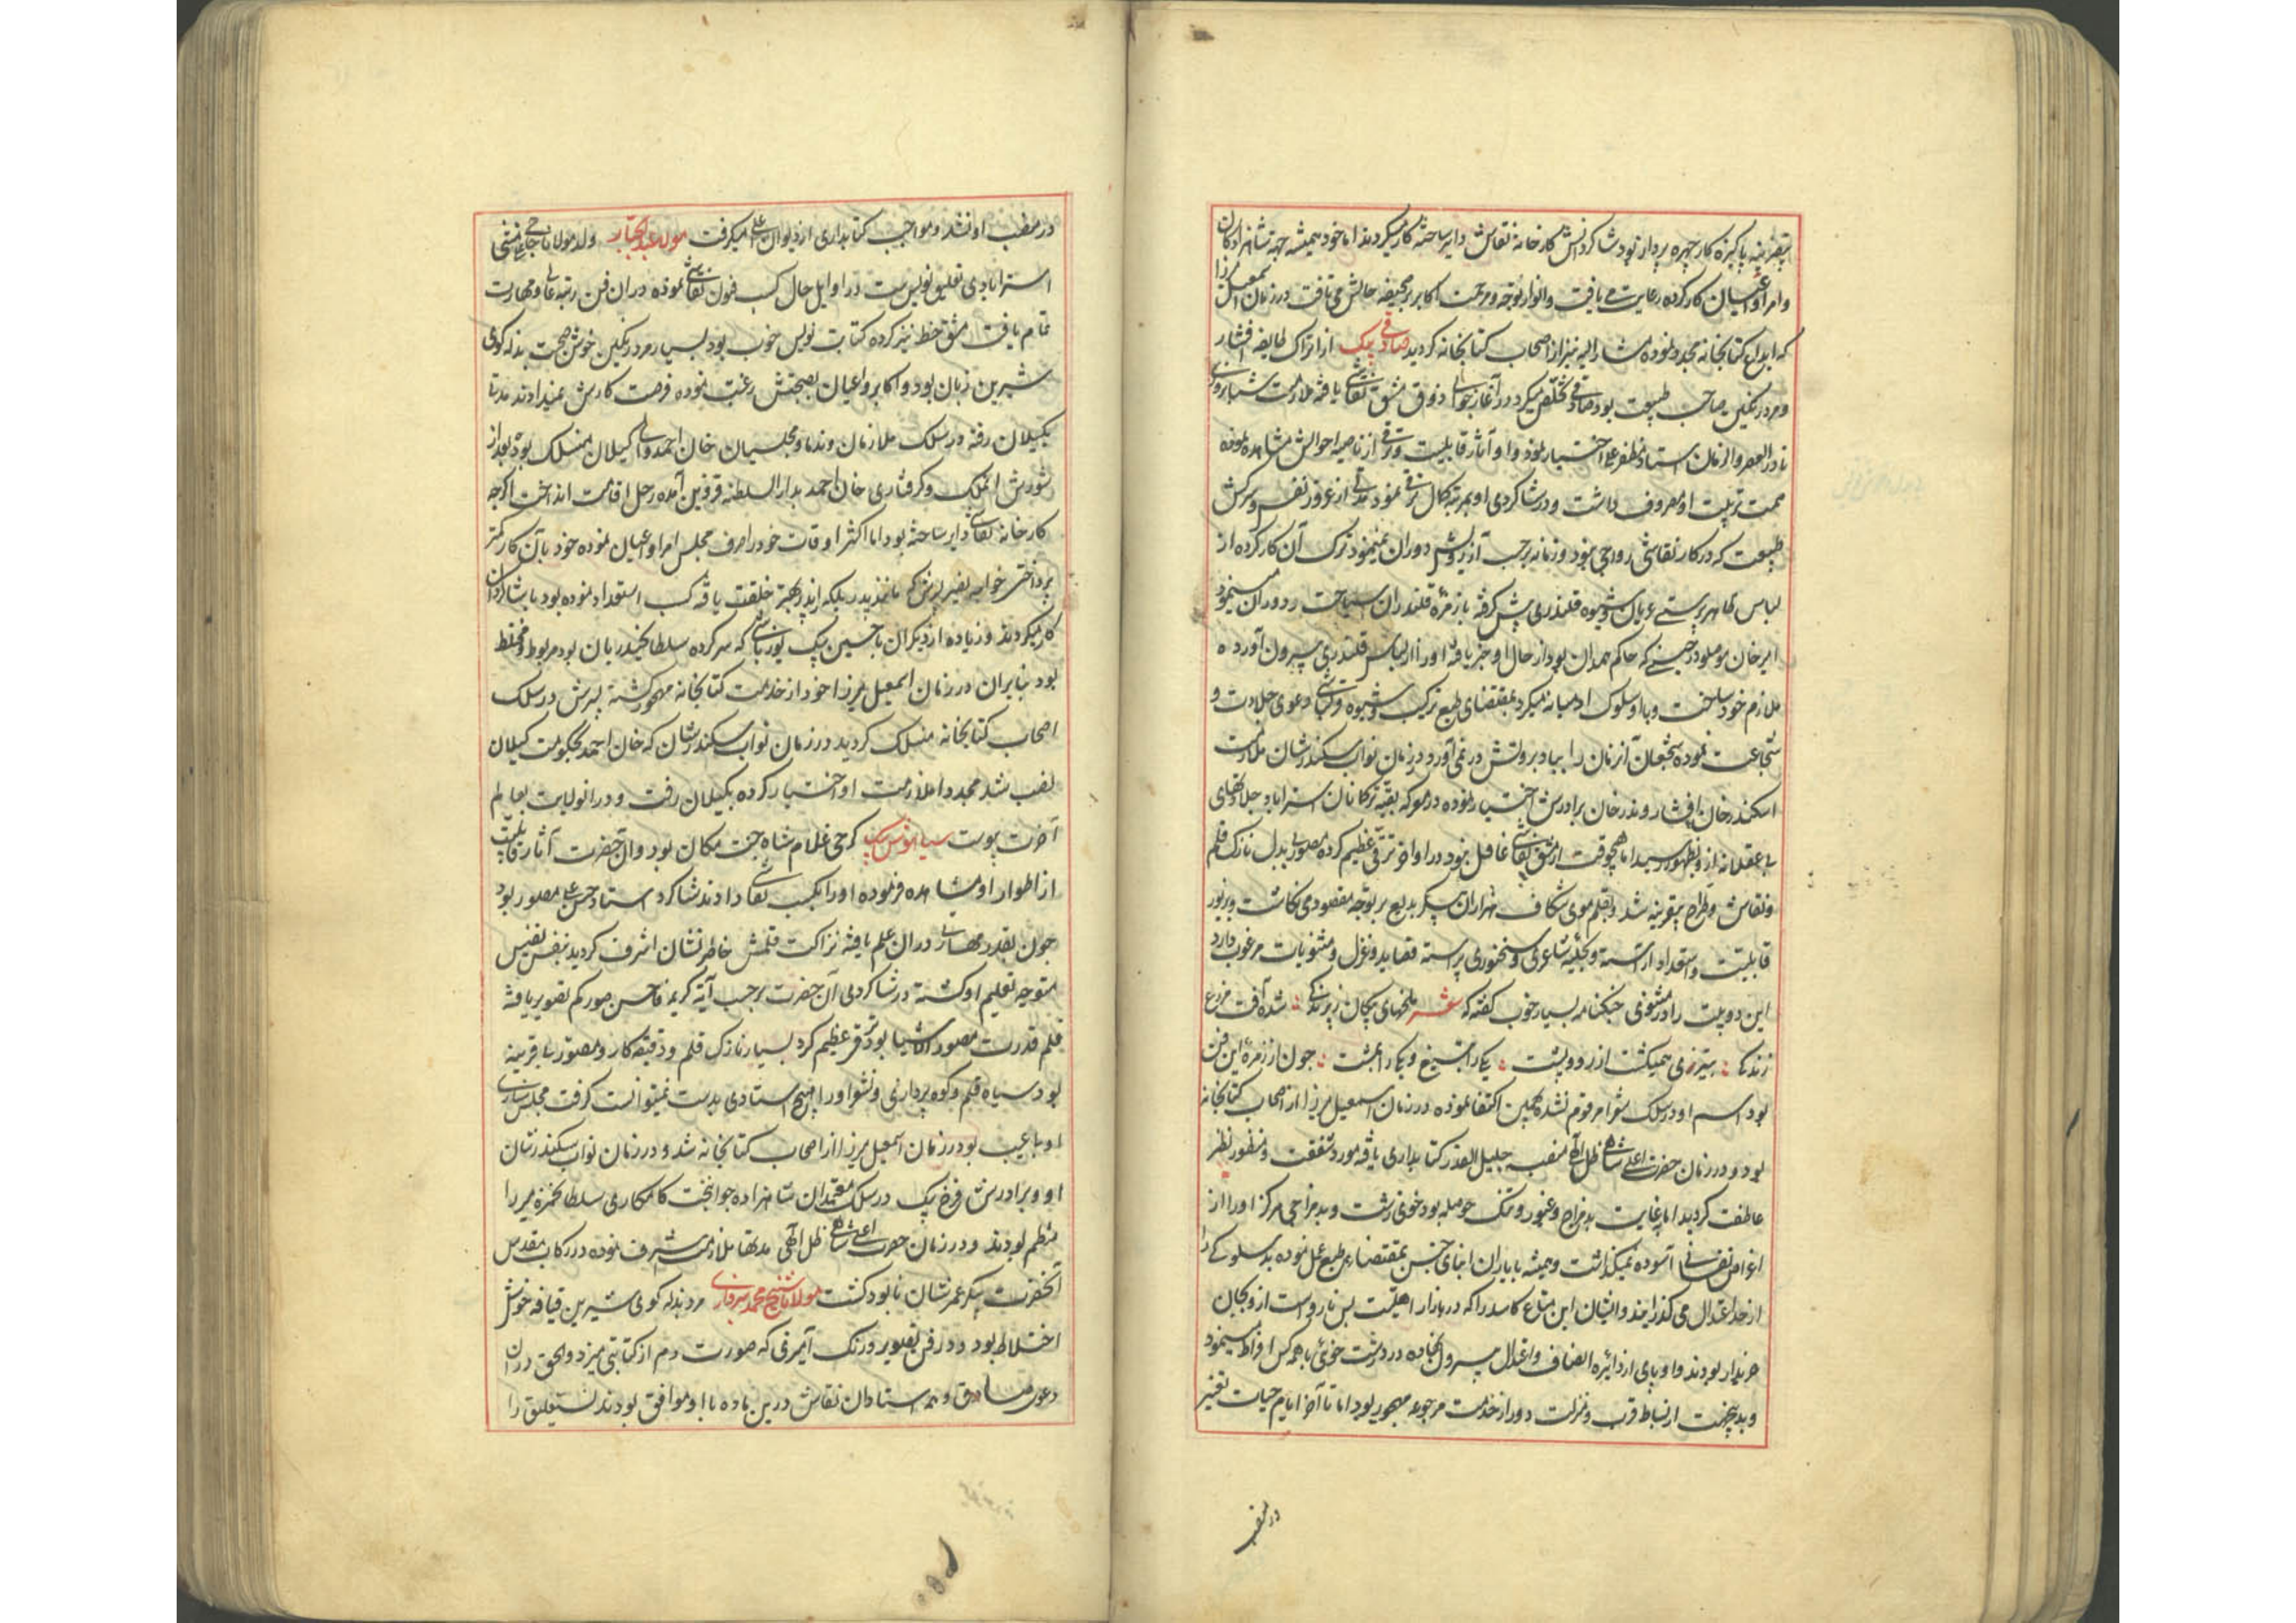 بیقرینه پاکیزه کار چهره پرداز بود شاگردانش کارخانه نقاشی دایر ساخته کار میکردند اما خود همیشه جهة شاهزادکان
وامرا و اعیان کار کرده رعایت می یافت وانوار توجه و مرحمت اکابر بر صحیفه حالش می تافت در زمان اسمعیل میرزا
که ابداع کتابخانه مجددا نموده مشار الیه نیز از اصحاب کتابخانه کردید صادقی بیک از اتراک طایفه افشار
ومرد رنکین صاحب طبیعت بود صادقی تخلص میکرد در آغاز جوانی ذوق مشق نقاشی یافته ملازمت شبانروزی
نادر العصر والزمان استاد مظفر علی اختیار نمود و او آثار قابلیت و ترقی از ناصیه احوالش مشاهده نموده
همت بتربیت او مصروف داشت و در شاکردی او بمرتبه کمال ترقی نمود مدتی از غرور نفس و سرکشی
طبیعت که در کار نقاشی رواجی نبود و زمانه برحسب آرزویش دوران نمینمود ترک آن کار کرده از
لباس ظاهر پرستی عریان و شیوه قلندری پیش کرفته با زمره قلندران سیاحت و دوران مینمود
امیر خان موصلو در حینی که حاکم همدان بود از حال او خبر یافته او را از لباس قلندری بیرون آورده
ملازم خود ساخت و با او سلوک ادمیانه میکرد بمقتضای طبع ترکیت و شیوه قزلباشی دعوی جلادت و
شجاعت نموده شجعان آنزمان را بباد بروتش در نمی آورد در زمان نواب سکندر شان ملازمت
اسکندر خان افشار و بدر خان برادرش اختیار نموده در معرکه بقیه ترکمانان استراباد جلادتهای
بی عقلانه ازو بظهور رسید اما هیچوقت از مشق نقاشی غافل نبود در اواخر ترقی عظیم کرده مصور بی بدل نازک قلم
ونقاش و طراح بیقرینه شد و بقلم موی شکاف هزاران پیکر بدیع بر توجه مقصود می نکاشت و بزیور
قابلیت و استعداد آراسته و بحلیه شاعری و سخنوری پیراسته قصاید و غزل و مثنویات مرغوب دارد
این دو بیت را در مثنوی جنکنامه بسیار خوب کفته که شعر
زندکی بتیر زمی همیکشت از رو و پشت یکی را بتیغ و یکی را بمشت چون از زمره این فن
بود اسم او در سلک شعرا مرقوم نشده بهمین اکتفا نموده در زمان اسمعیل میرزا از اصحاب کتابخانه
بود و در زمان حضرت اعلی شاهی ظل الهی منصب جلیل القدر کتابداری یافته مورد شفقت و منظور نظر
عاطفت کردید اما بغایت بد مزاج و غیور و تنک حوصله بود خوی زشت و بد مزاجی هرکز او را از
اغراض نفسانی آسوده نمیکذاشت و همیشه با یاران و ابنای جنس بمقتضای طبع عمل نموده بد سلوکی را
از حد اعتدال می کذرانید و ایشان این متاع کاسد را که در بازار اهلیت بس نارواست ازو بجان
خریدار بودند و او پای از دائره انصاف و اعتدال بیرون نهاده در درشت خوئی با همه کس افراط مینمود
وبدین جهت از بساط قرب و منزلت دور از خدمت مرجوعه مهجور بود اما تا آخر ایام حیات تغیر
در منصب
در منصب او نشد و مواجب کتابداری از دیوان اعلی میکرفت مولانا عبدالجبار ولد مولانا حاجی علی منشی
استرابادی تعلیق نویس است در اوایل حال کسب فنون نقاشی نموده در ان فن رتبه عالی و مهارت
تمام یافت مشق خط نیز کرده کتابت نویس خوب بود بسیار مرد رنکین خوش صحبت بذله کوی
شیرین زبان بود و اکابر و اعیان بصحبتش رغبت نموده فرصت کارش نمیدادند مدتی
بکیلان رفته در سلک ملازمان و ندما و مجلسیان خان احمد والی کیلان منسلک بود بعد از
شورش الملک و کرفتاری خان احمد بدار السلطنه قزوین آمده رحل اقامت انداخت اکرچه
کارخانه نقاشی دایر ساخته بود اما اکثر اوقات خود را صرف مجلس امرا و اعیان نموده خود بآن کار کمتر
پرداختی خواجه نصیر پسرش که مانند پدر بلکه از پدر بهتر خلقت یافته کسب استعداد نموده بود با شاکردان
کار میکردند و زیاده از دیکران با حسین بیک یوزباشی که سر کرده سلطان حیدریان بود مربوط و مختلط
بود بنابران در زمان اسمعیل میرزا خود از خدمت کتابخانه مهجور کشته پسرش در سلک
اصحاب کتابخانه منسلک کردید در زمان نواب سکندر شان که خان احمد بحکومت کیلان
نصب شد مجددا ملازمت او اختیار کرده بکیلان رفت و در انولایت بعالم
آخرت پیوست سیاوش بیک کرجی غلام شاه جنت مکان بود و ان حضرت آثار قابلیت
از اطوار او مشاهده فرموده او را بکسب نقاشی دادند شاکرد استاد حسن علی مصور بود
چون بقدر مهارتی دران علم یافته نزاکت قلمش خاطر نشان اشرف کردید بنفس نفیس
متوجه تعلیم او کشته در شاکردی آن حضرت برحسب آیه کریمه فاحسن صورکم تصویر یافته
قلم قدرت مصور الاشیا بود ترقی عظیم کرد بسیار نازک قلم و دقیقه کار و مصور با قرینه
بود سیاه قلم و کوه پردازی و نشو او را هیچ استادی بدست نمیتوانست کرفت مجلس سازی
او با عیب بود در زمان اسمعیل میرزا از اصحاب کتابخانه شد و در زمان نواب سکندر شان
او و برادرش فرخ بیک در سلک معتمدان شاهزاده جوانبخت کامکار سلطان حمزه میرزا
منتظم بودند و در زمان حضرت اعلی شاهی ظل الهی مدتها ملازمت اشرف نموده در رکاب مقدس
آنحضرت پیکر عمرشان نابود کشت مولانا شیخ محمد سبزواری مرد بذله کوی شیرین قیافه خوش
اختلاط بود و در فن تصویر و رنک آمیزی که صورت دم از کتابتی میزد و الحق در ان
دعوی صادق و همه استادان نقاش درین ماده با او موافق بودند نستعلیق را